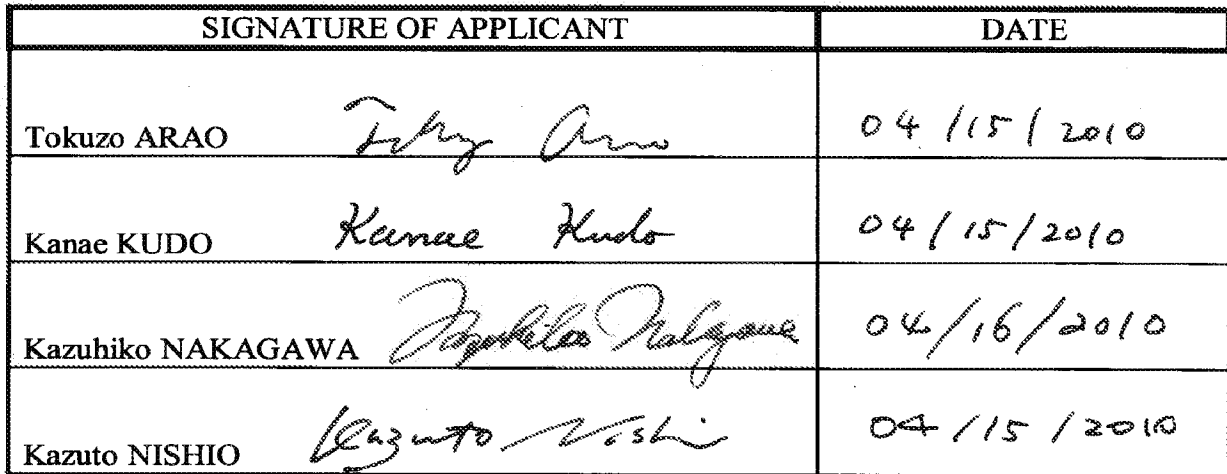 SIGNATURE OF APPLICANT DATE
Tokuzo ARAO Toky Arao 04/15/2010
Kanae KUDO Kanae Kudo 04/15/2010
Kazuhiko NAKAGAWA Kazuhiko Nakagawa 04/16/2010
Kazuto NISHIO Kazuto Nishi 04/15/2010